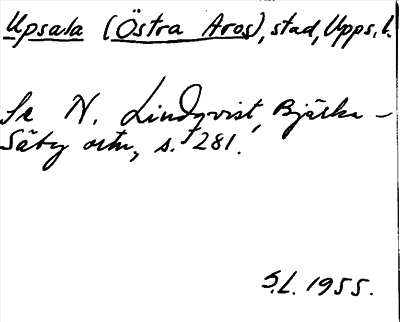 Upsala (Östra Aros), stad, Upps. l.
Se N. Lindqvist, Bjärka-
Säby ortn, s. 281.
S.L. 1955.